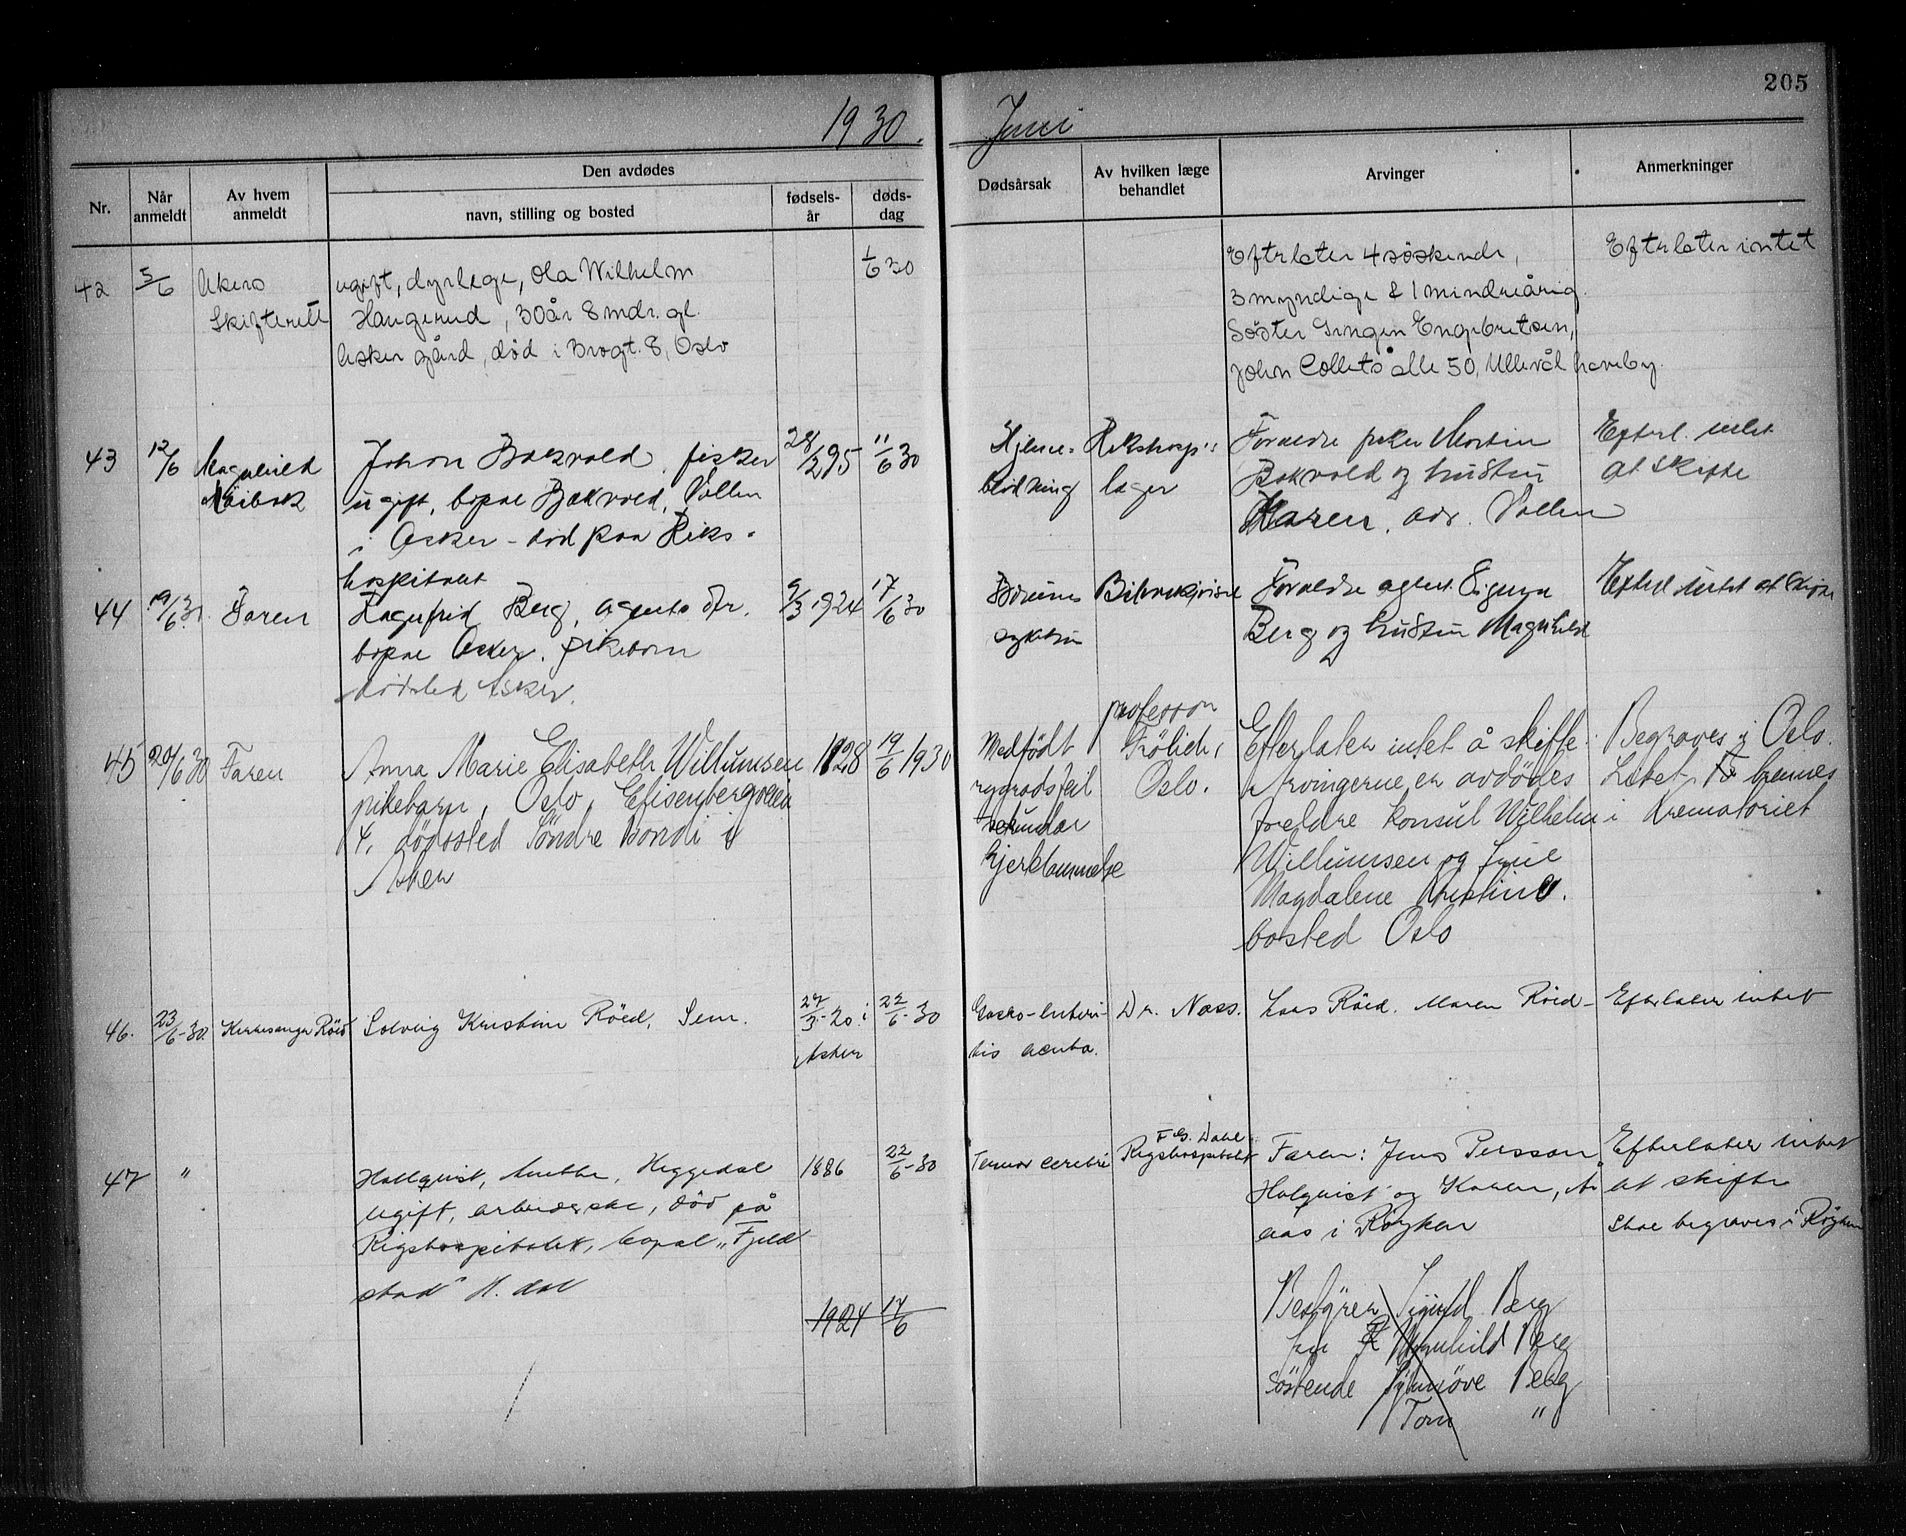 205
1930. Juni
Nr.
Når anmeldt
Av hvem anmeldt
Den avdødes
navn, stilling og bosted
fødsels-år
døds-dag
Dødsårsak
Av hvilken læge behandlet
Arvinger
Anmerkninger
42 5/6 Akers 1/6 30
Skifterett
ugift, dyrlæge, Ola Wilhelm
Haugerud, 30 år 8 mdr. gl.
Asker gård, død i Brogt. 8, Oslo
Efterlater 4 søskende,
3 myndige & 1 mindreårig.
Søster Engebretsen,
John Collets alle 50, Ullevål haveby.
Efterlater intet
43 12/6 Magnhild
Johan Bakvold, fisker 28/2 95 11/6 30
ugift, bopæl Bakvold, Vollen
i Asker - död paa Riks-
hospitalet
Hjerne-
blödning
Rikshosp.'s
læger
Foreldre fisker Martin
Bakvold og hustru
Karen, adr. Vollen
Efterl. intet
at skifte
44 19/6 30. Faren
Ragnfrid Berg, agents dtr. 9/3 1924 17/6 30
bopæl Asker. pikebarn
dödsted Asker.
Bærums
sykehus
Foreldre agent Sigurd
Berg og hustru Magnhild
Efterl intet at skifte
45 20/6 30 Faren
Anna Marie Elisabeth Willumsen 1128 19/6 1930
pikebarn, Oslo, Eilisenbergveien
4, dödssted Söndre Bondi i
Asker
Medfödt
rygradsfeil
sekundær
hjerklammelse
professor
Frölich,
Oslo.
Efterlater intet å skifte.
Arvingerne er avdödes
foreldre Konsul Wilhelm
Willumsen og frue
Magdalene Kristine.
bosted Oslo
Begraves i Oslo.
Liket brennes
i Krematoriet
46. 23/6-30. Kirkesanger Röed
Solveig Kristine Röed, Sem. 27/3-20 i 22/6-30
Asker
Gastro-enteri-
tis acuta.
Dr. Næss.
Lars Röed. Maren Röed-
Efterlater intet
47 "
Hallqvist, Anette, Heggedal 1886 22/6-30
ugift, arbeiderske, död på
Rigshospitalet, bopæl "Fjeld
stad" H. dal
Tumor cerebri
F G. Dahl
Rigshospitalet
Faren: Jens Persson
Holqvist og Karen, Å
aas i Röyken
Efterlater intet
at skifte
Skal begraves i Röyken
1924 17/6
Bestyrer Sigurd Berg
fru Magnhild Berg
Söskende Synnöve Berg
Tom "